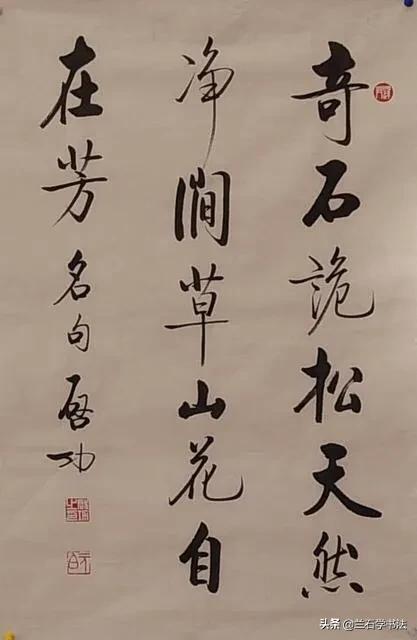 奇石詭松天然
净澗草山花自
在芳 名句 啓功
头条 @兰石学书法